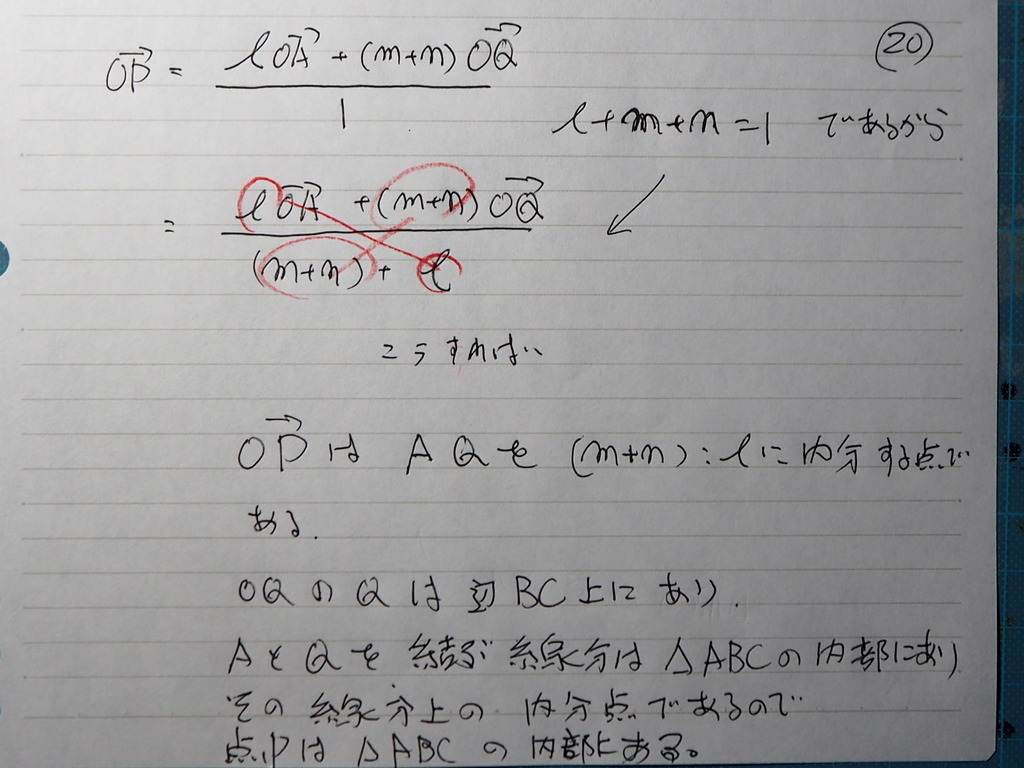 ⑳
OP→ = (ℓOA→ + (m+n)OQ→) / 1
ℓ+m+n=1 であるから
= (ℓOA→ + (m+n)OQ→) / ((m+n)+ℓ)
こうすれば、
OP→は AQを (m+n):ℓに内分する点で
ある.
OQのQは辺BC上にあり.
AとQを結ぶ線分は△ABCの内部にあり
その線分上の内分点であるので
点Pは△ABCの内部にある。